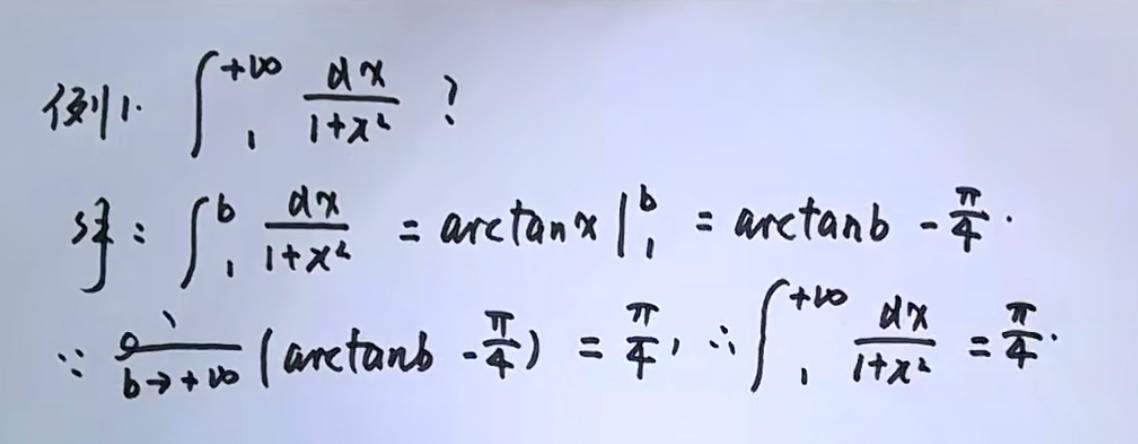 例1. ∫₁^{+∞} dx/(1+x²) ?
解: ∫₁^b dx/(1+x²) = arctanx |₁^b = arctanb - π/4.
∵ lim_{b→+∞} (arctanb - π/4) = π/4, ∴ ∫₁^{+∞} dx/(1+x²) = π/4.